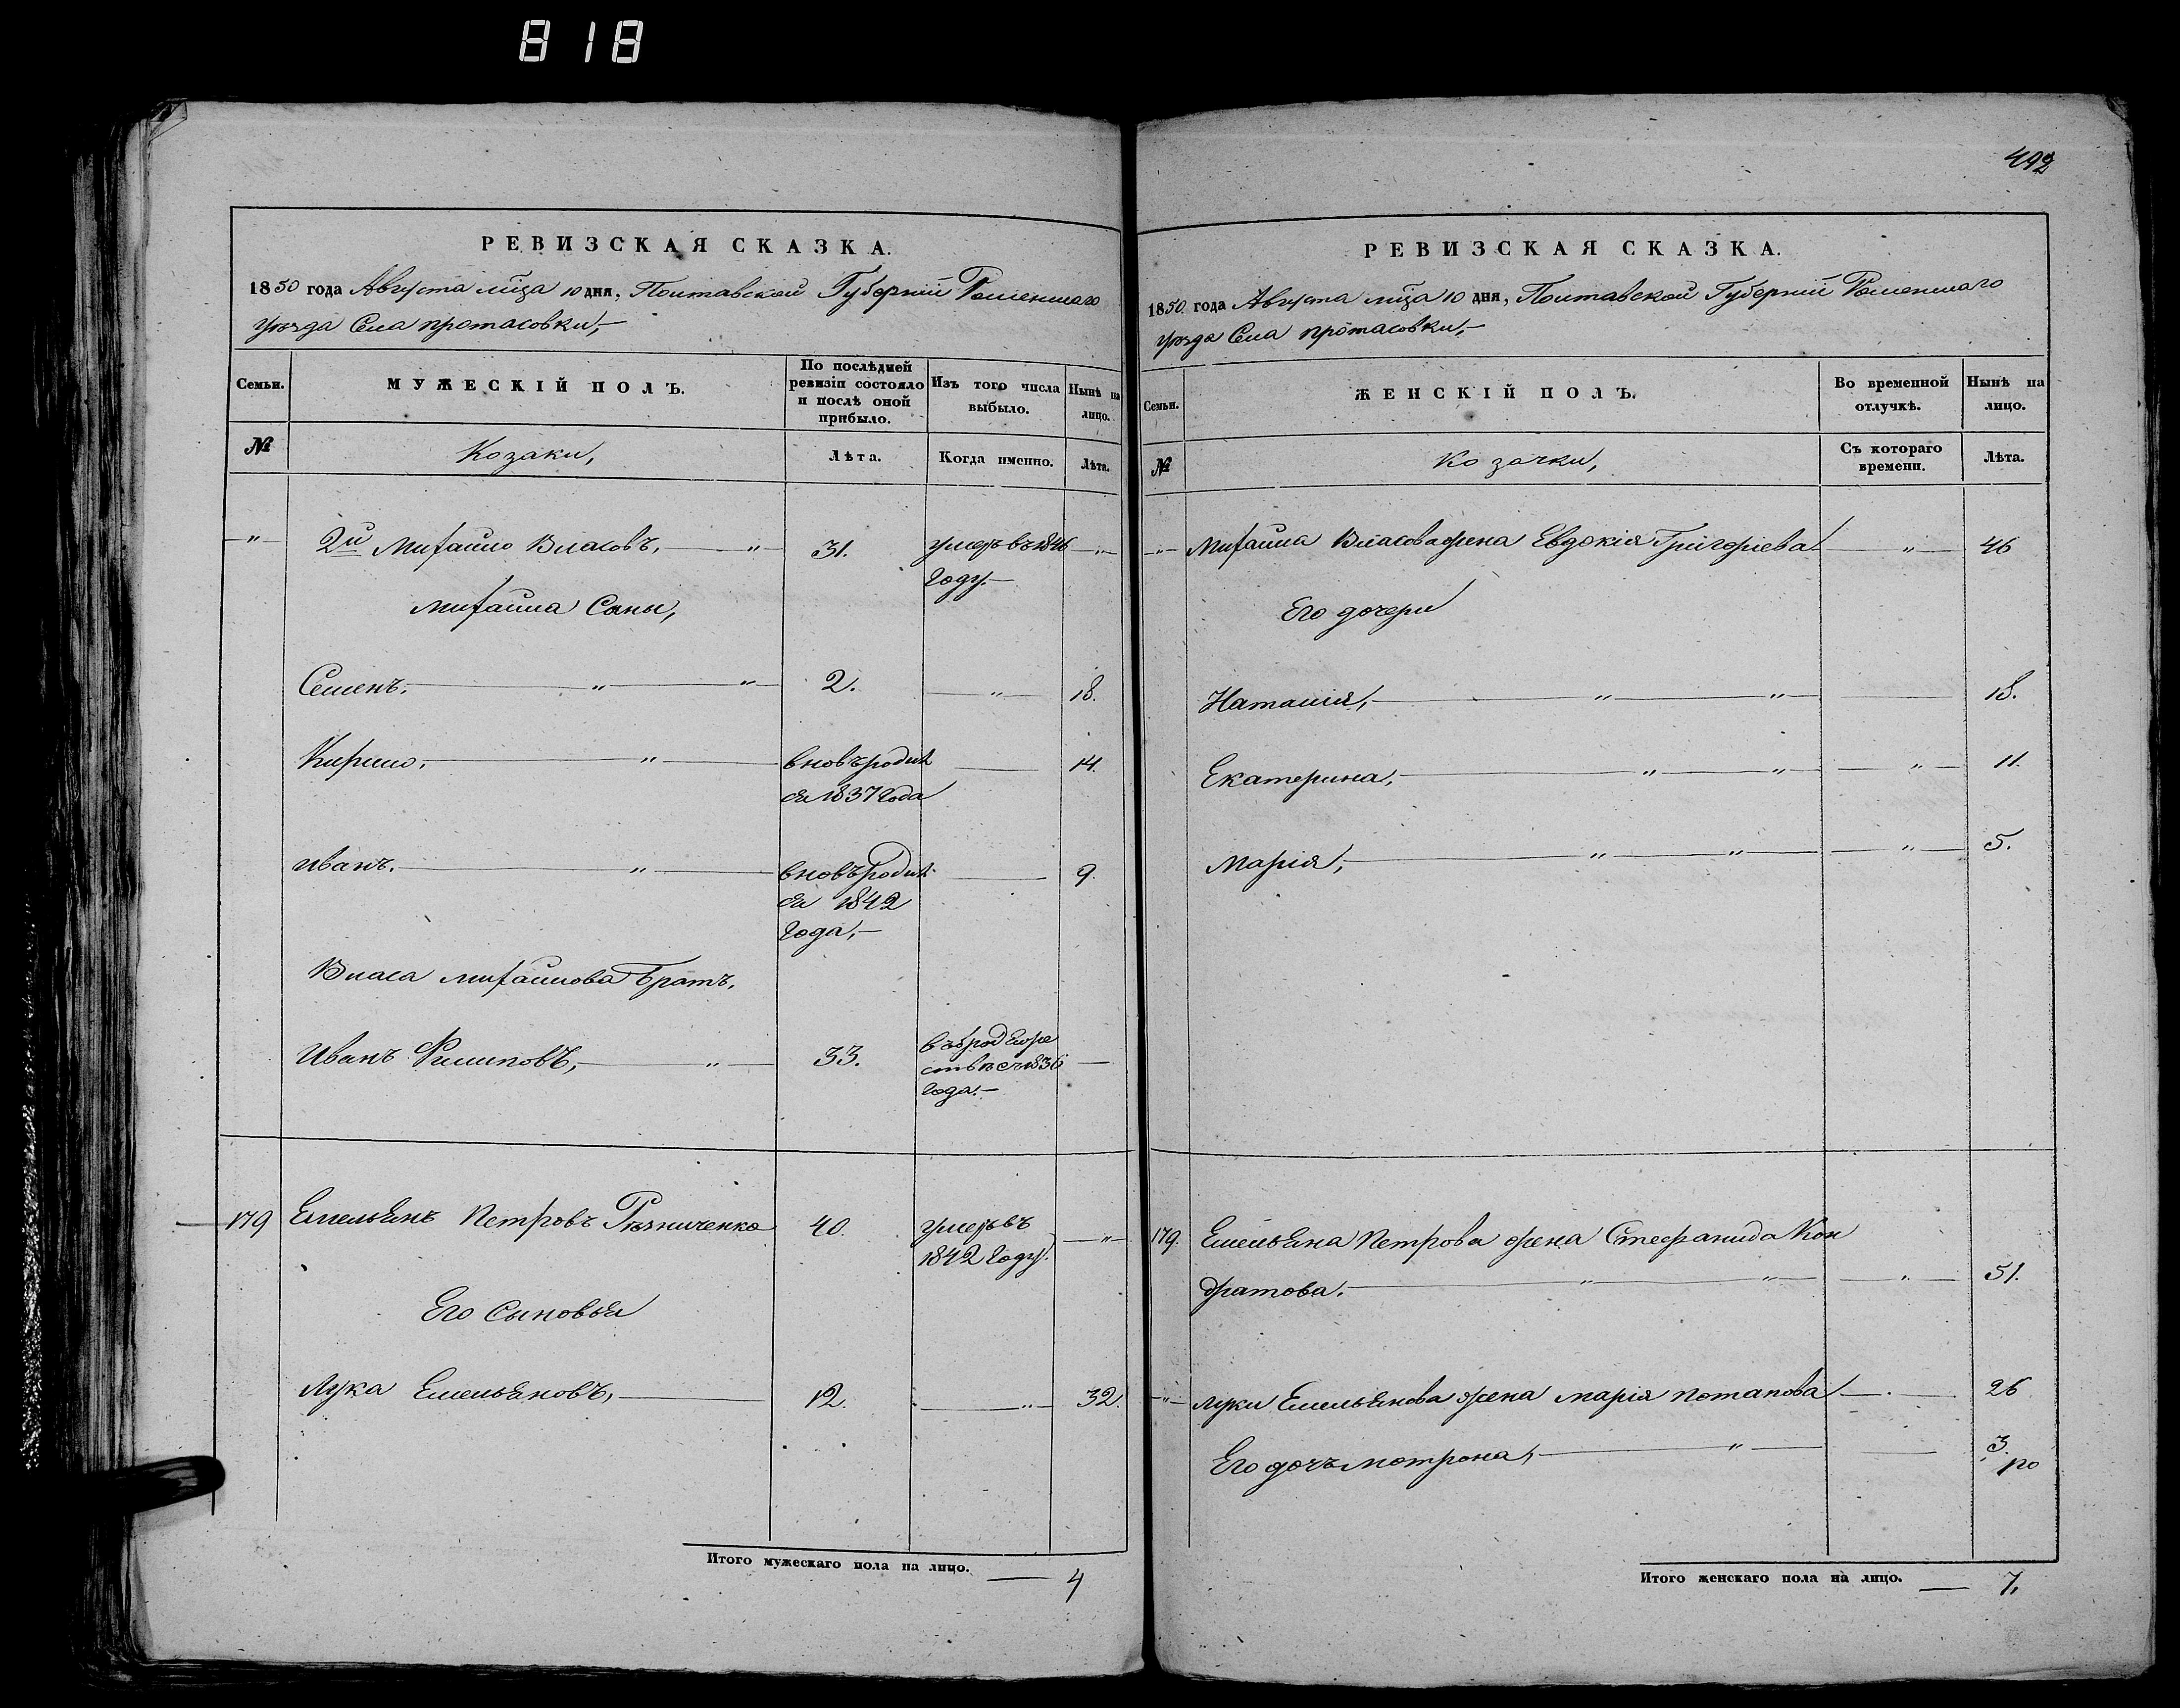 818
492
РЕВИЗСКАЯ СКАЗКА.
1850 года Августа мѣца 10 дня, Полтавской Губерніи Роменшаго
уѣзда Села протасовки,
Семьи.
МУЖЕСКІЙ ПОЛЪ.
По послѣдней
ревизіи состояло
и послѣ оной
прибыло.
Изъ того числа
выбыло.
Нынѣ на
лицо.
№
Козаки,
Лѣта.
Когда именно.
Лѣта.
" 2й Михайло Власовъ, " 31. умеръ въ 1846 "
году.
Михайла Сыны,
Семенъ, " " 2. " 18.
Кирило, " вновь родил 14.
ся 1837 года
Иванъ, " вновь родил 9.
ся 1842
года,
Власа михайлова братъ,
Иванъ Филиповъ, " 33. въ
ствѣ съ 1836
года.
179 Емельянъ Петровъ Рѣзниченко 40. умеръ въ "
1842 году.
Его Сыновья
Лука Емельяновъ, 12. " 32.
Итого мужескаго пола на лицо. 4
РЕВИЗСКАЯ СКАЗКА.
1850 года Августа мѣца 10 дня, Полтавской Губерніи Роменшаго
уѣзда Села протасовки,
Семьи.
ЖЕНСКІЙ ПОЛЪ.
Во временной
отлучкѣ.
Нынѣ на
лицо.
№
Козачки,
Съ котораго
времени.
Лѣта.
" Михайла Власова жена Евдокія Григоріева " 46
Его дочери
Наталія, " " 18.
Екатерина, " " " 11.
Марія, " " " 5.
179. Емельяна Петрова жена Стефанида Кон
дратова. " " " 51.
" луки Емельянова жена марія потапова 26
Его дочь мотрона, " 3.
по
Итого женскаго пола на лицо. 7,